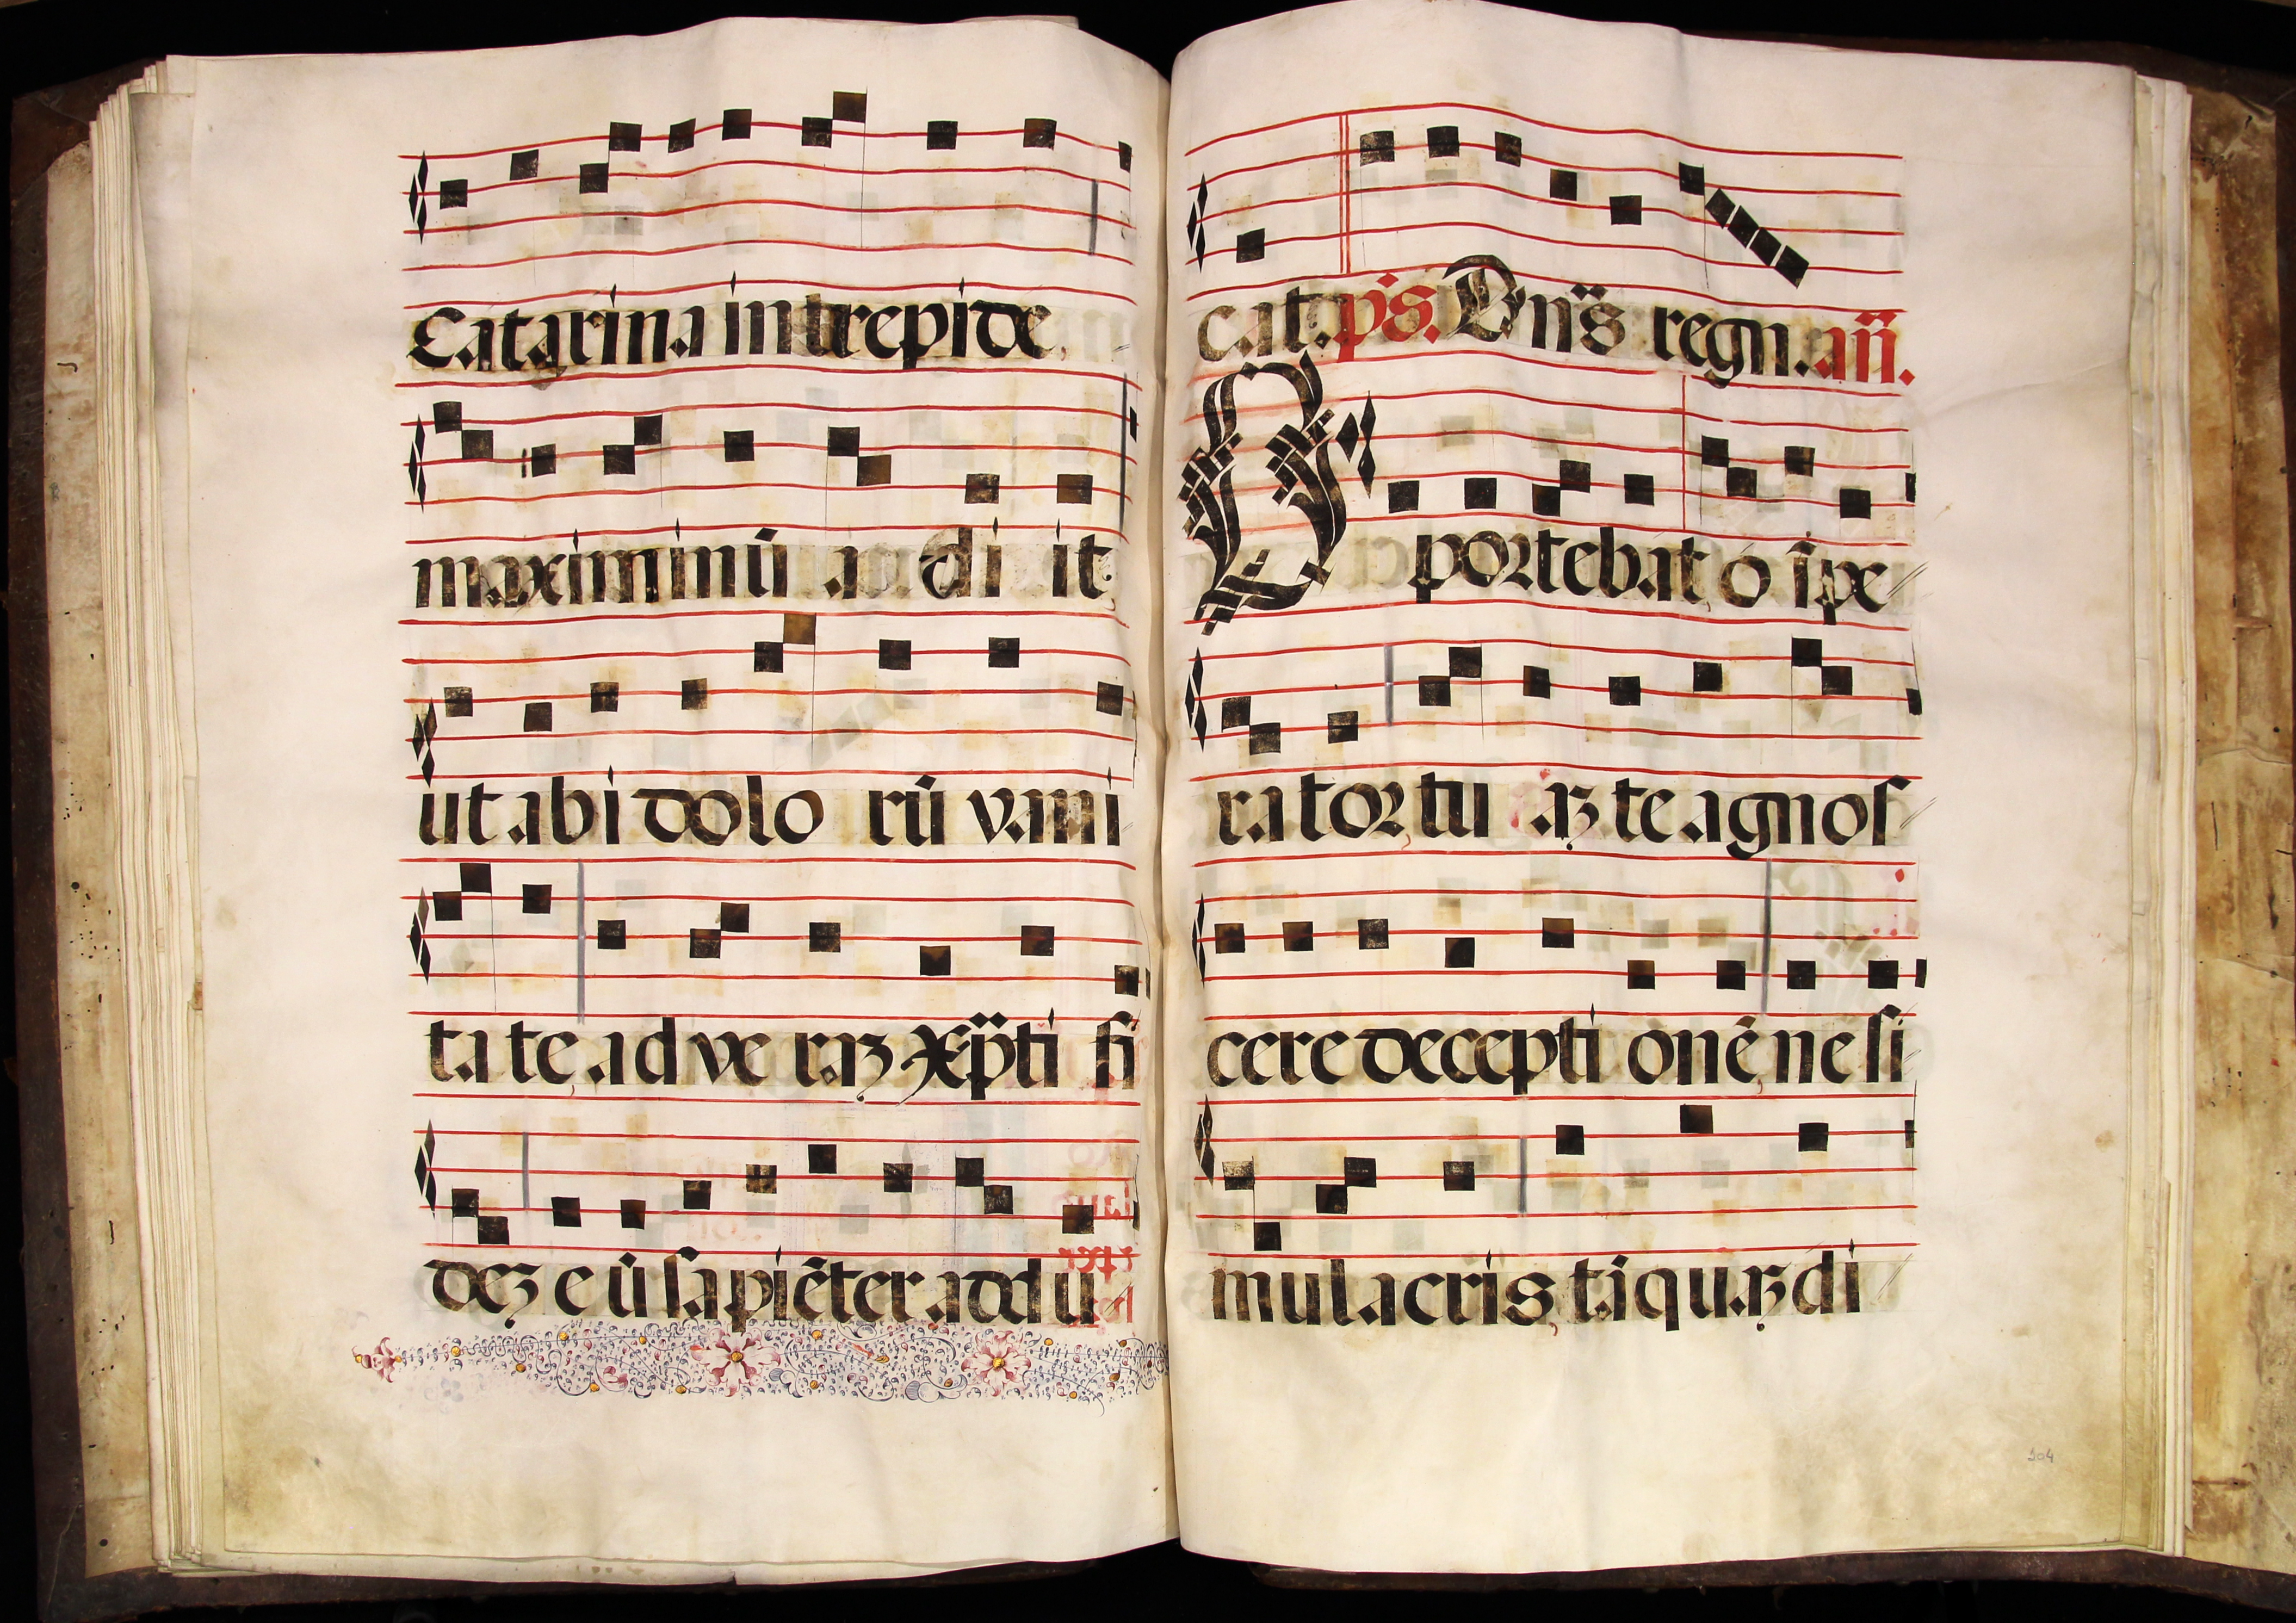 Catarina intrepide
maximinū a di it
ut ab i dolo rū vani
ta te, ad ve raȝ xp̄ti fi
deȝ e ū sapiēter addu
cat. ps. Dn̄s regn. an̄.
O portebat o īpe
rator tu aȝ te agnos
cere decepti onē, ne si
mulacris, tāquaȝ di
104